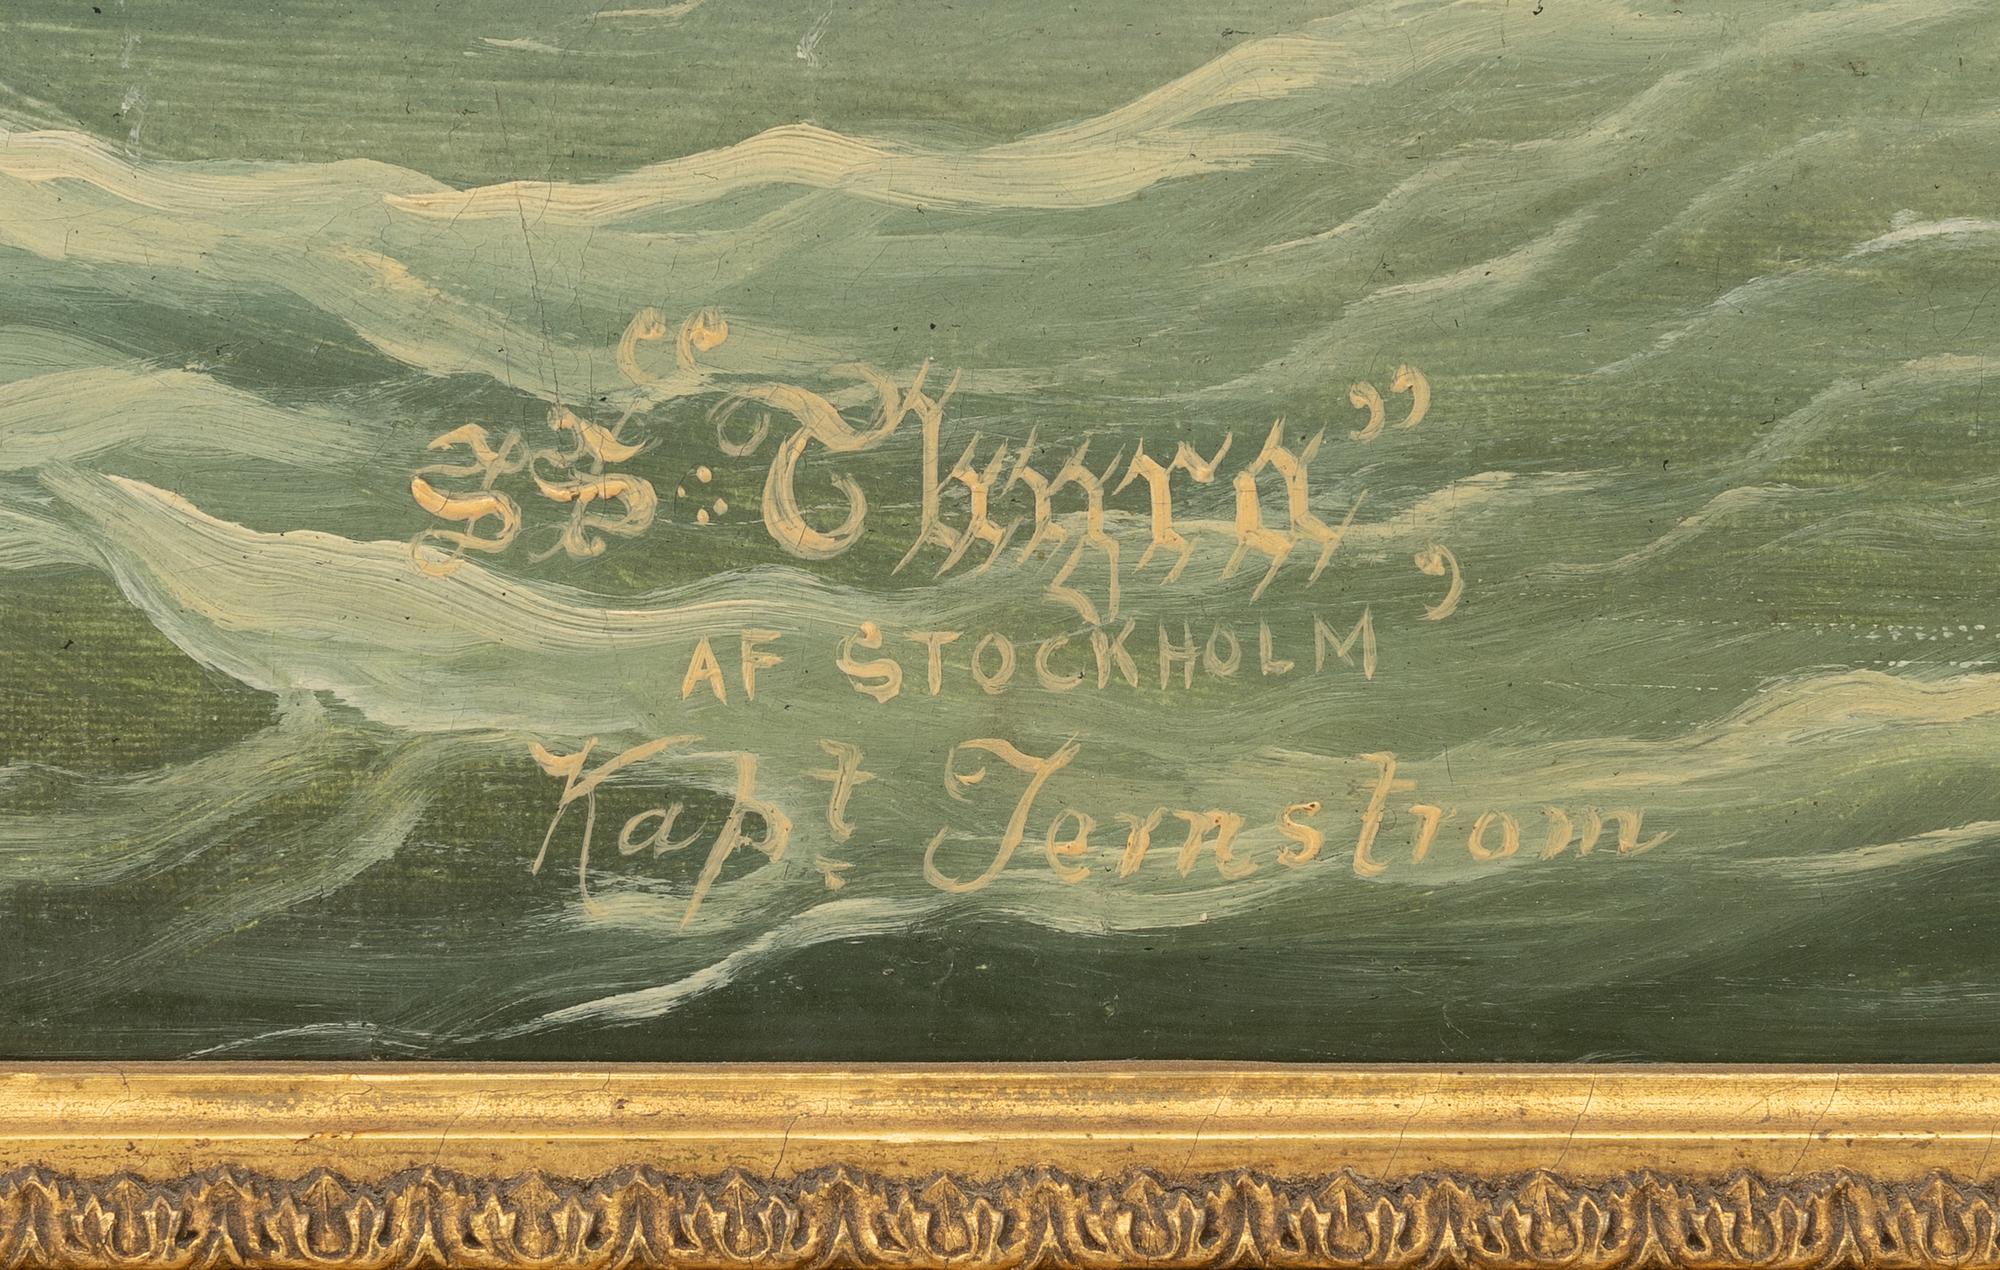 SS: “Thyra”,
AF STOCKHOLM
Kapt Jernstrom